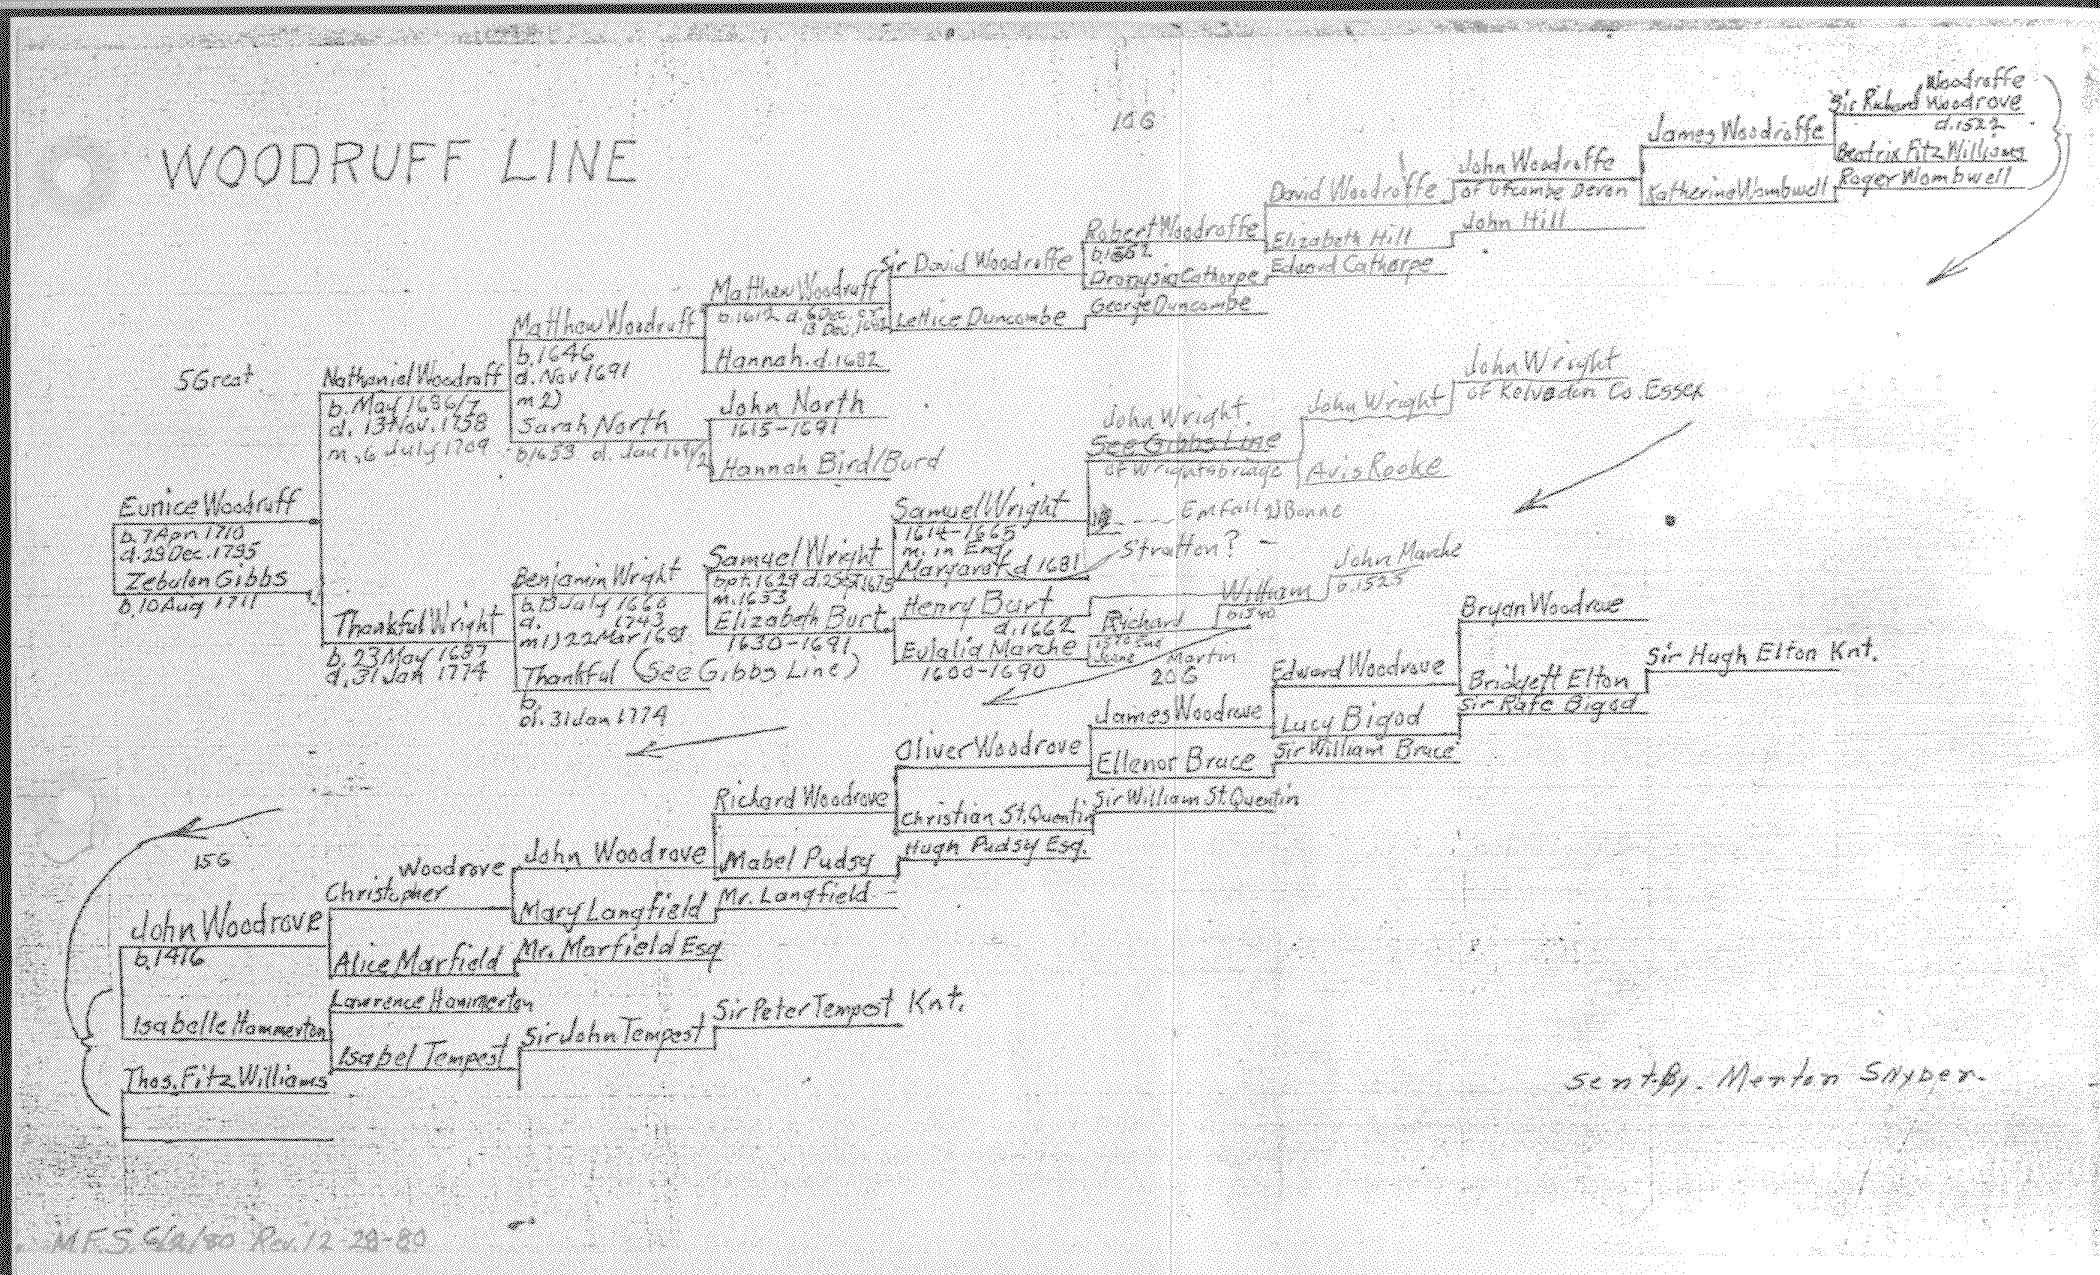 WOODRUFF LINE
10G
Woodroffe
Sir Richard Woodrove
d.1522
Beatrix Fitz Williams
James Woodroffe
Katherine Wombwell
Roger Wombwell
John Woodroffe
of Ufcombe Devon
David Woodroffe
John Hill
Elizabeth Hill
Robert Woodroffe
b.1552
Edward Cathorpe
Dionysia Cathorpe
Sir David Woodroffe
George Duncombe
Lettice Duncombe
Matthew Woodruff
b.1612 d. 6 Dec. or
13 Dec. 1682
Hannah. d.1682
Matthew Woodruff
b.1646
d. Nov 1691
m 2)
Sarah North
b1653 d. Jan 1691/2
John North
1615-1691
Hannah Bird/Burd
5 Great
Nathaniel Woodruff
b. May 1686/7
d. 13 Nov. 1758
m, 6 July 1709
John Wright
of Kelvedon Co. Essex
John Wright
Avis Rooke
John Wright.
See Gibbs Line
of Wrightsbridge
Eunice Woodruff
b. 7 Apr 1710
d. 29 Dec. 1795
Zebulon Gibbs
b. 10 Aug 1711
Samuel Wright
1614-1665
m. in Eng.
Margaret d 1681
Stratton?
Samuel Wright
bpt. 1629
m. 1653
Elizabeth Burt
1630-1691
Benjamin Wright
b. 13 July 1660
d. 1743
m 1) 22 Mar 1681
Thankful (See Gibbs Line)
b.
d. 31 Jan 1774
Thankful Wright
b. 23 May 1687
d. 31 Jan 1774
Henry Burt
d. 1662
Eulalia Marche
1600-1690
John Marche
b. 1525
William
b. 1540
Richard
Martin
20G
Bryan Woodrove
Sir Hugh Elton Knt.
Bridgett Elton
Edward Woodrove
Sir Rafe Bigod
Lucy Bigod
James Woodrove
Sir William Bruce
Ellenor Bruce
Oliver Woodrove
Sir William St. Quentin
Christian St. Quentin
Richard Woodrove
Hugh Pudsy Esq.
Mabel Pudsy
15G
John Woodrove
Mr. Langfield
Mary Langfield
Woodrove
Christopher
Mr. Marfield Esq
Alice Marfield
John Woodrove
b. 1416
Lawrence Hammerton
Isabelle Hammerton
Sir Peter Tempest Knt.
Sir John Tempest
Isabel Tempest
Thos. Fitz Williams
Sent By. Merton Snyder.
M.F.S. 6/2/80 Rev. 12-28-80